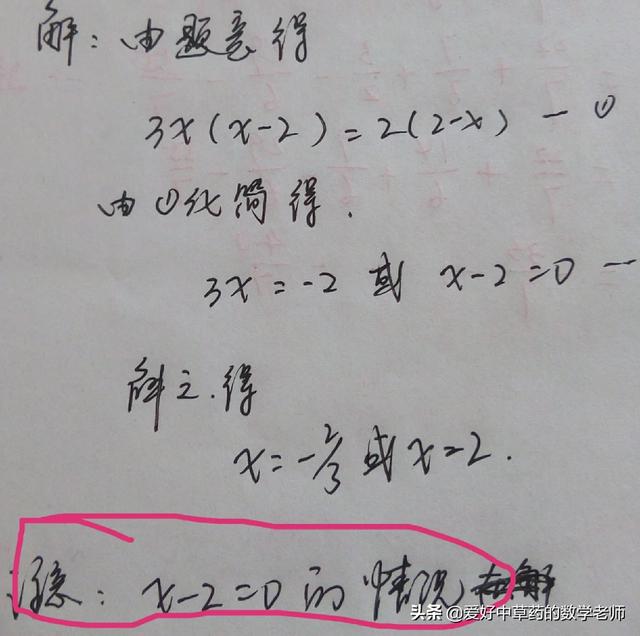 解：由题意得
3x(x-2)=2(2-x) — ①
由①化简得.
3x=-2 或 x-2=0 —
解之.得
x=-2/3 或 x=2.
注意：x-2=0 的情况
头条 @爱好中草药的数学老师